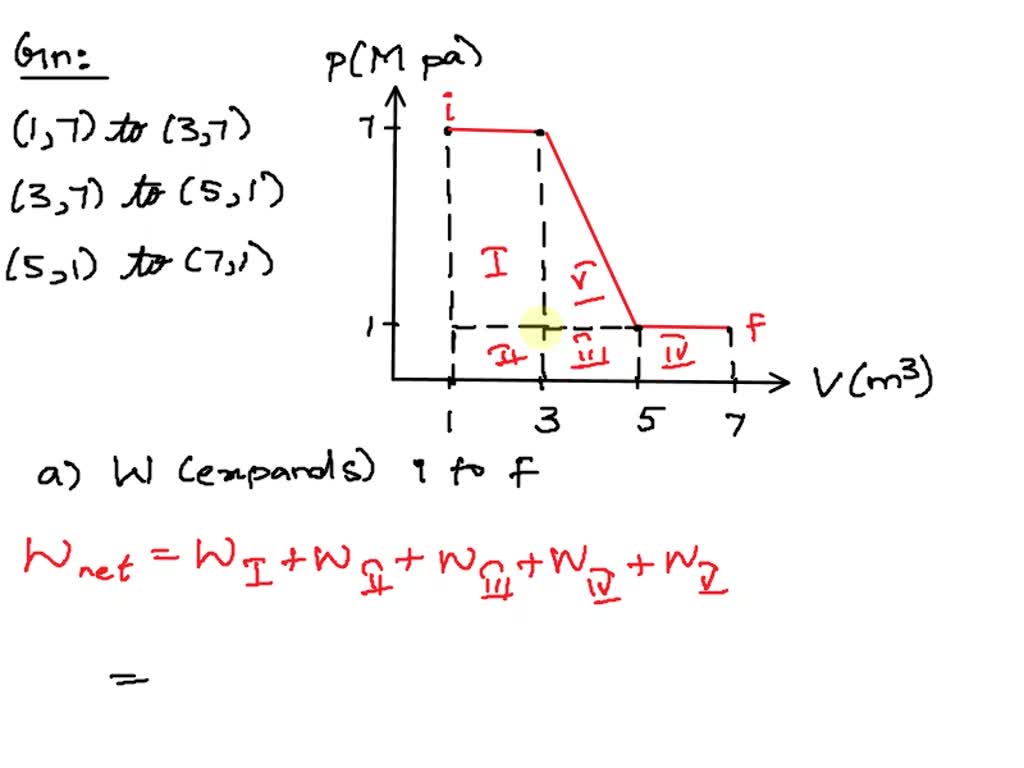 Gn:
P(M pa)
(1,7) to (3,7)
(3,7) to (5,1)
(5,1) to (7,1)
i
7
I
V
1
F
II
III
IV
V(m³)
1 3 5 7
a) W (expands) i to F
W net = W I + W II + W III + W IV + W V
=